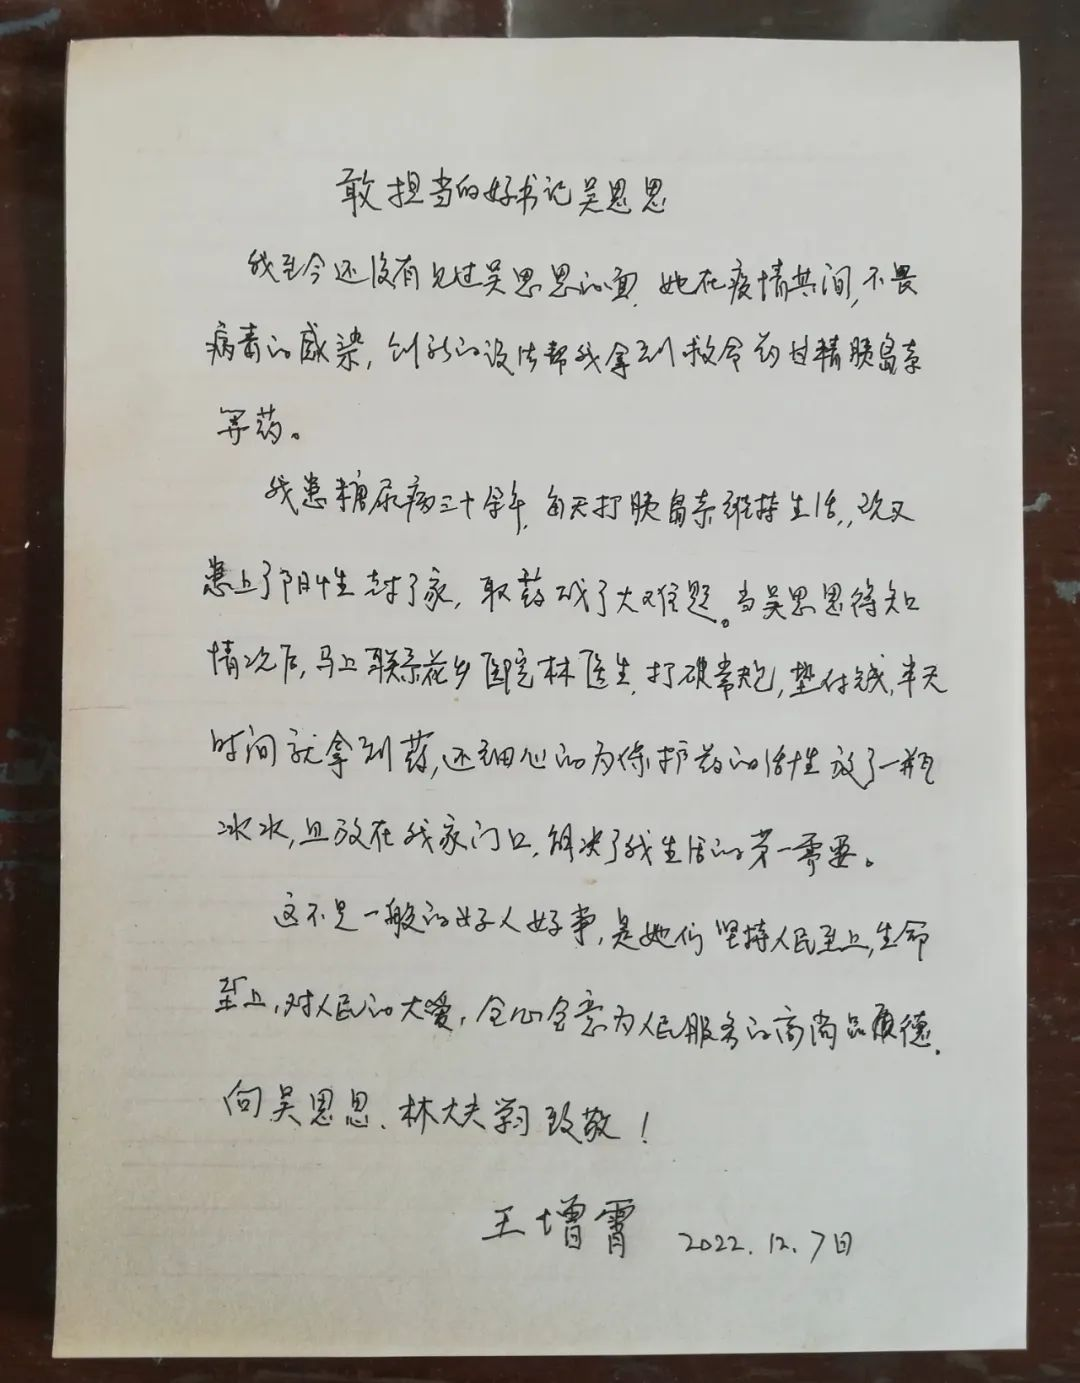 敢担当的好书记吴思思
我至今还没有见过吴思思的面,她在疫情其间,不畏
病毒的感染,创新的设法帮我拿到救命药甘精胰岛素
等药。
我患糖尿病三十余年,每天打胰岛素维持生活,,现又
患上了阳性封了家,取药成了大难题。当吴思思得知
情况后,马上联系花乡医院林医生,打破常规,垫付钱,半天
时间就拿到药,还细心的为保护药的活性放了一瓶
冰水,且放在我家门口,解决了我生活的第一需要。
这不是一般的好人好事,是她们坚持人民至上,生命
至上,对人民的大爱,全心全意为人民服务的高尚品德.
向吴思思、林大夫学习致敬!
王增霄 2022.12.7日